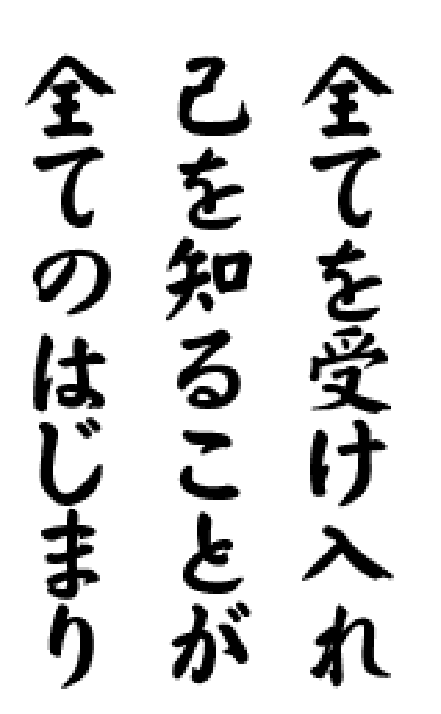 全てを受け入れ
己を知ることが
全てのはじまり